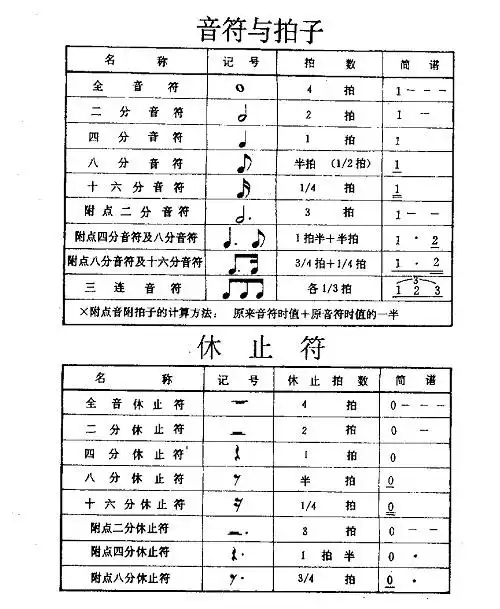 音符与拍子
名 称 记 号 拍 数 简 谱
全 音 符 4 拍 1 - - -
二 分 音 符 2 拍 1 -
四 分 音 符 1 拍 1
八 分 音 符 半拍 (1/2拍) 1
十 六 分 音 符 1/4 拍 1
附 点 二 分 音 符 3 拍 1 - -
附点四分音符及八分音符 1拍半+半拍 1 · 2
附点八分音符及十六分音符 3/4拍+1/4拍 1 · 2
三 连 音 符 各1/3拍 3 1 2 3
×附点音附拍子的计算方法: 原来音符时值+原音符时值的一半
休 止 符
名 称 记 号 休 止 拍 数 简 谱
全 音 休 止 符 4 拍 0 - - -
二 分 休 止 符 2 拍 0 -
四 分 休 止 符 1 拍 0
八 分 休 止 符 半 拍 0
十 六 分 休 止 符 1/4 拍 0
附点二分休止符 3 拍 0 - -
附点四分休止符 1 拍 半 0 ·
附点八分休止符 3/4 拍 0 ·